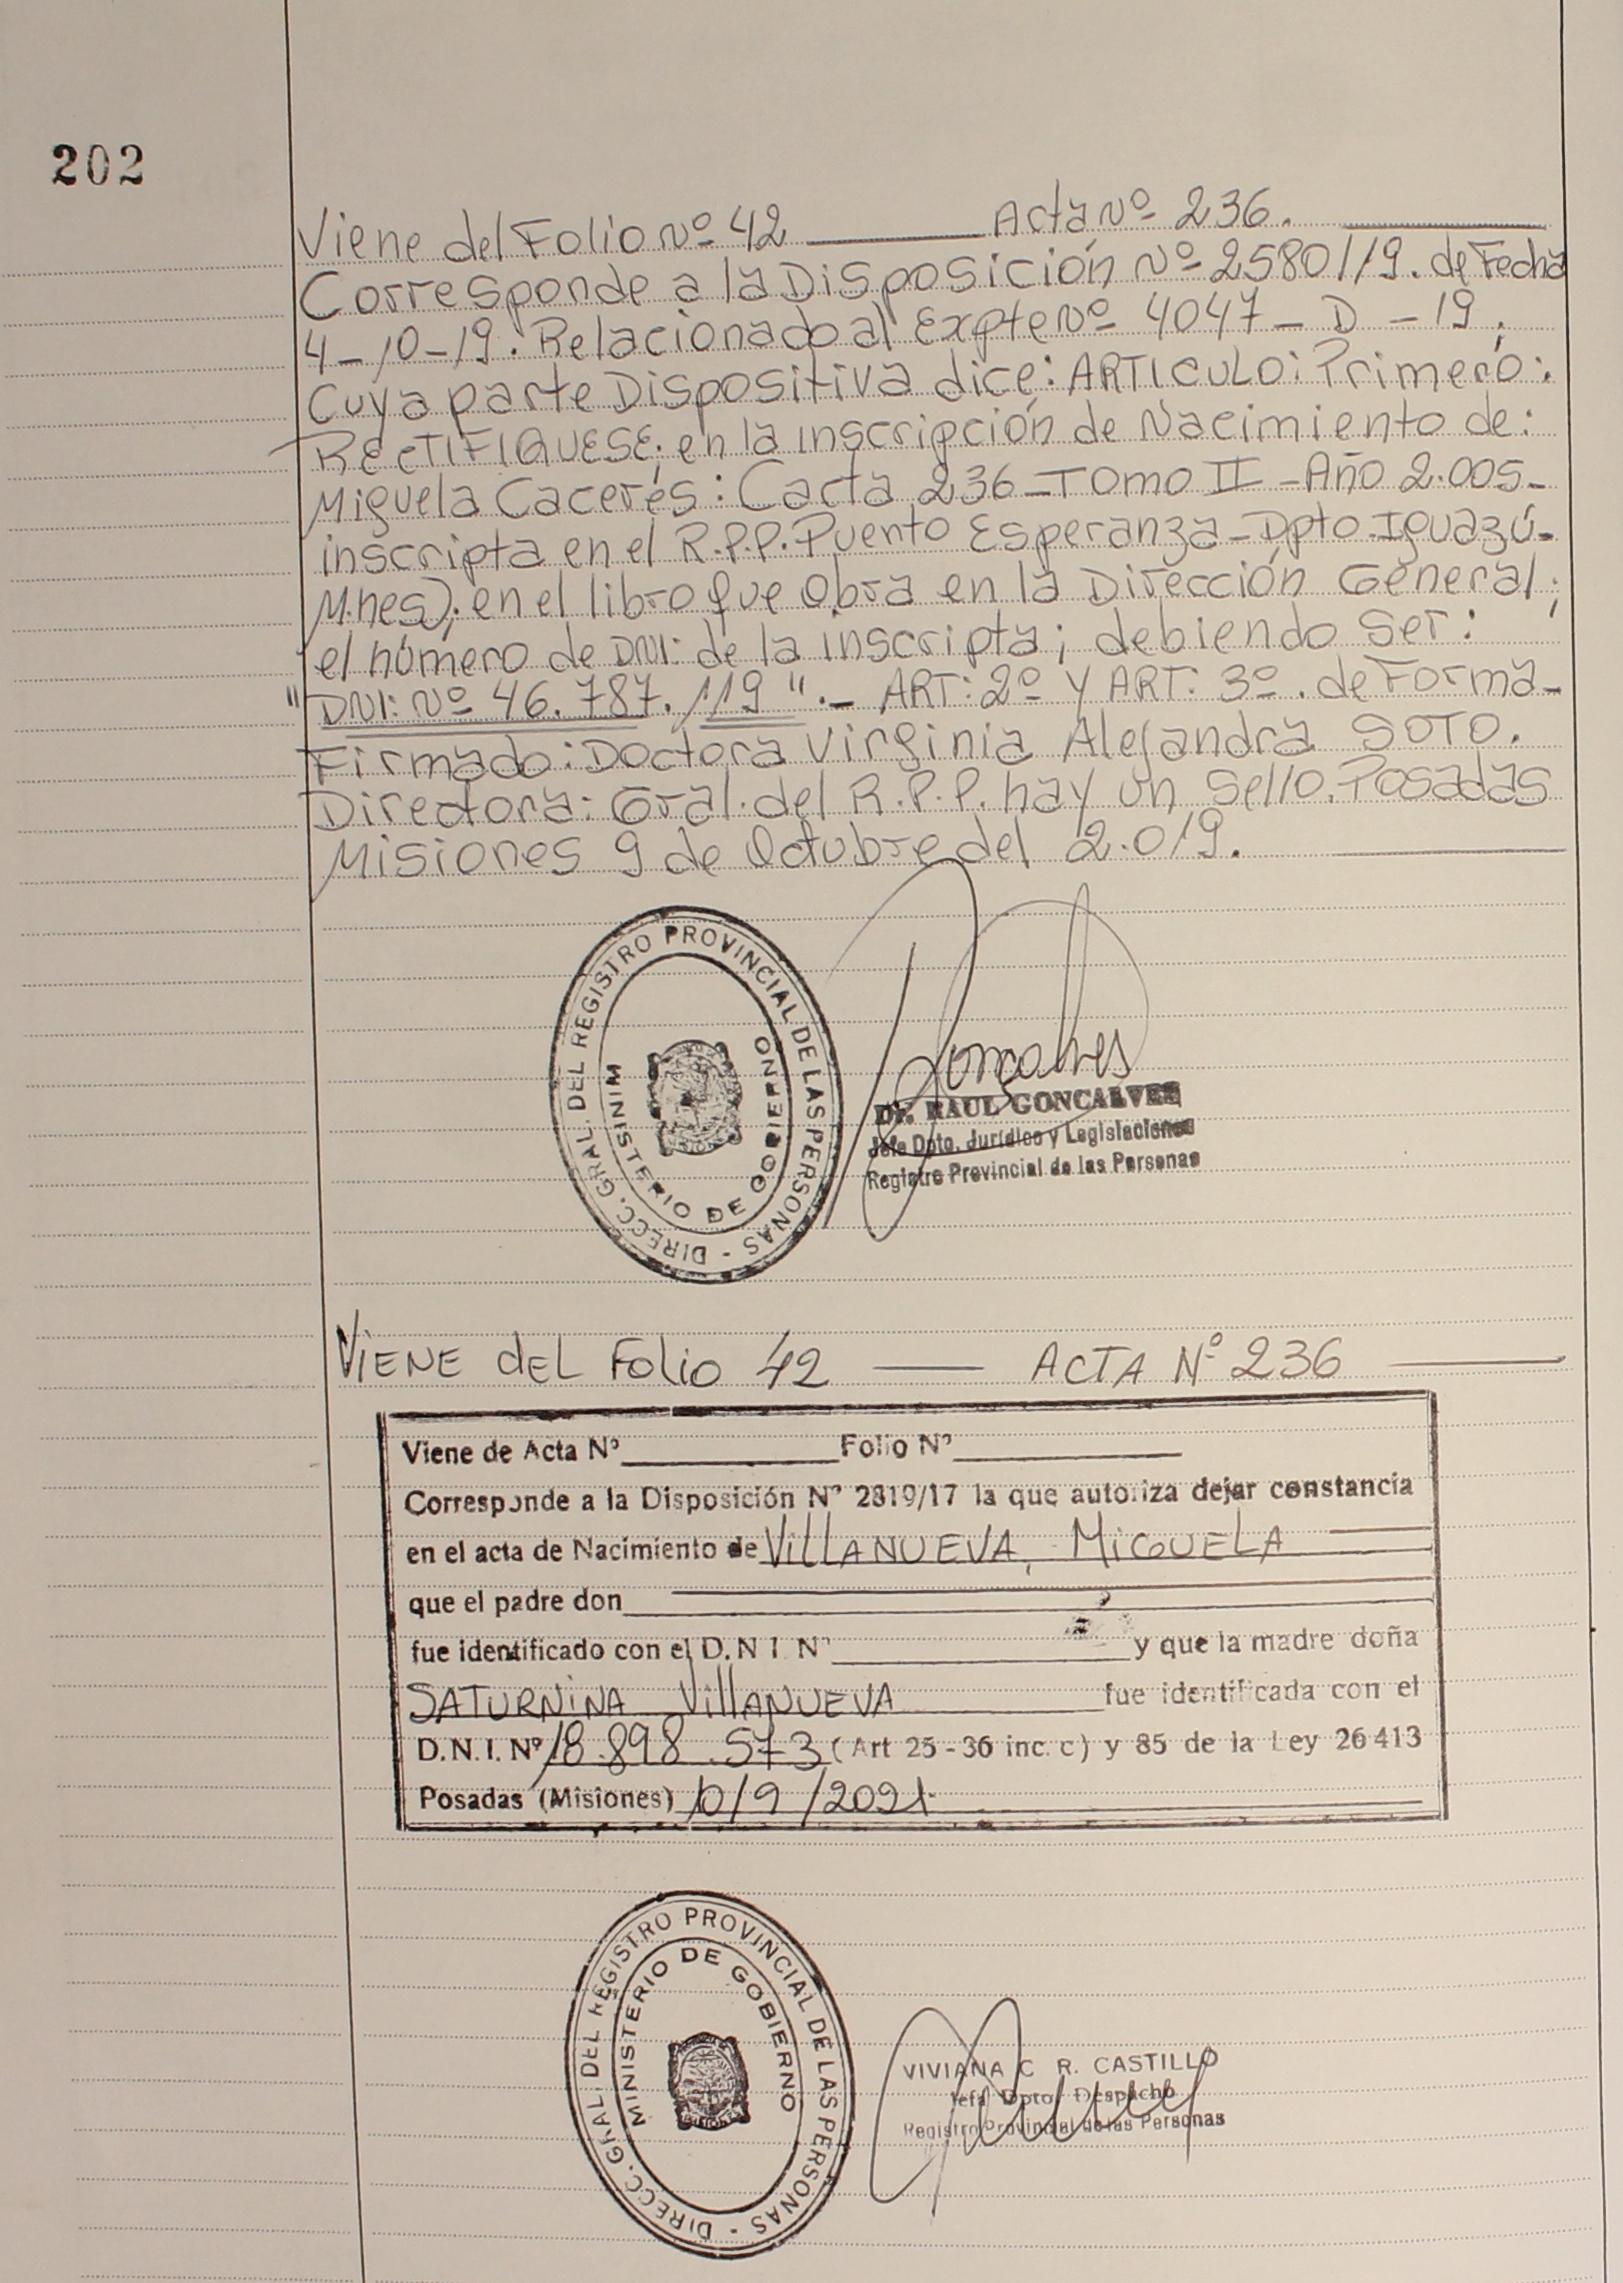 202
Viene del Folio Nº 42 Acta Nº 236.
Corresponde a la Disposición Nº 2580/19. de Fecha
4-10-19. Relacionado al Expte Nº 4047-D-19.
Cuya parte Dispositiva dice: ARTICULO: Primero:
RECTIFIQUESE; en la inscripción de Nacimiento de:
Miguela Caceres: (acta 236-Tomo II-Año 2.005-
inscripta en el R.P.P. Puento Esperanza-Dpto. Iguazú-
Mnes); en el libro que obra en la Dirección General;
el número de DNI: de la inscripta; debiendo Ser:
"DNI: Nº 46.787.119".- ART: 2º Y ART: 3º. de Forma-
Firmado: Doctora Virginia Alejandra SOTO.
Directora: Gral. del R.P.P. hay un Sello. Posadas
Misiones 9 de Octubre del 2.019.
DIRECC. GRAL. DEL REGISTRO PROVINCIAL DE LAS PERSONAS -
MINISTERIO DE GOBIERNO
Goncalves
Dr. RAUL GONCALVES
Jefe Dpto. Jurídico y Legislaciones
Registro Provincial de las Personas
VIENE DEL Folio 42 — ACTA Nº 236
Viene de Acta Nº Folio Nº
Corresponde a la Disposición Nº 2819/17 la que autoriza dejar constancia
en el acta de Nacimiento de VILLANUEVA, MIGUELA
que el padre don
fue identificado con el D.N.I. Nº y que la madre doña
SATURNINA VILLANUEVA fue identificada con el
D.N.I. Nº 18.898.573 (Art 25-36 inc. c) y 85 de la Ley 26413
Posadas (Misiones) 10/9/2021
DIRECC. GRAL. DEL REGISTRO PROVINCIAL DE LAS PERSONAS -
MINISTERIO DE GOBIERNO
MISIONES
VIVIANA C R. CASTILLO
Jefa Dpto. Despacho
Registro Provincial de las Personas